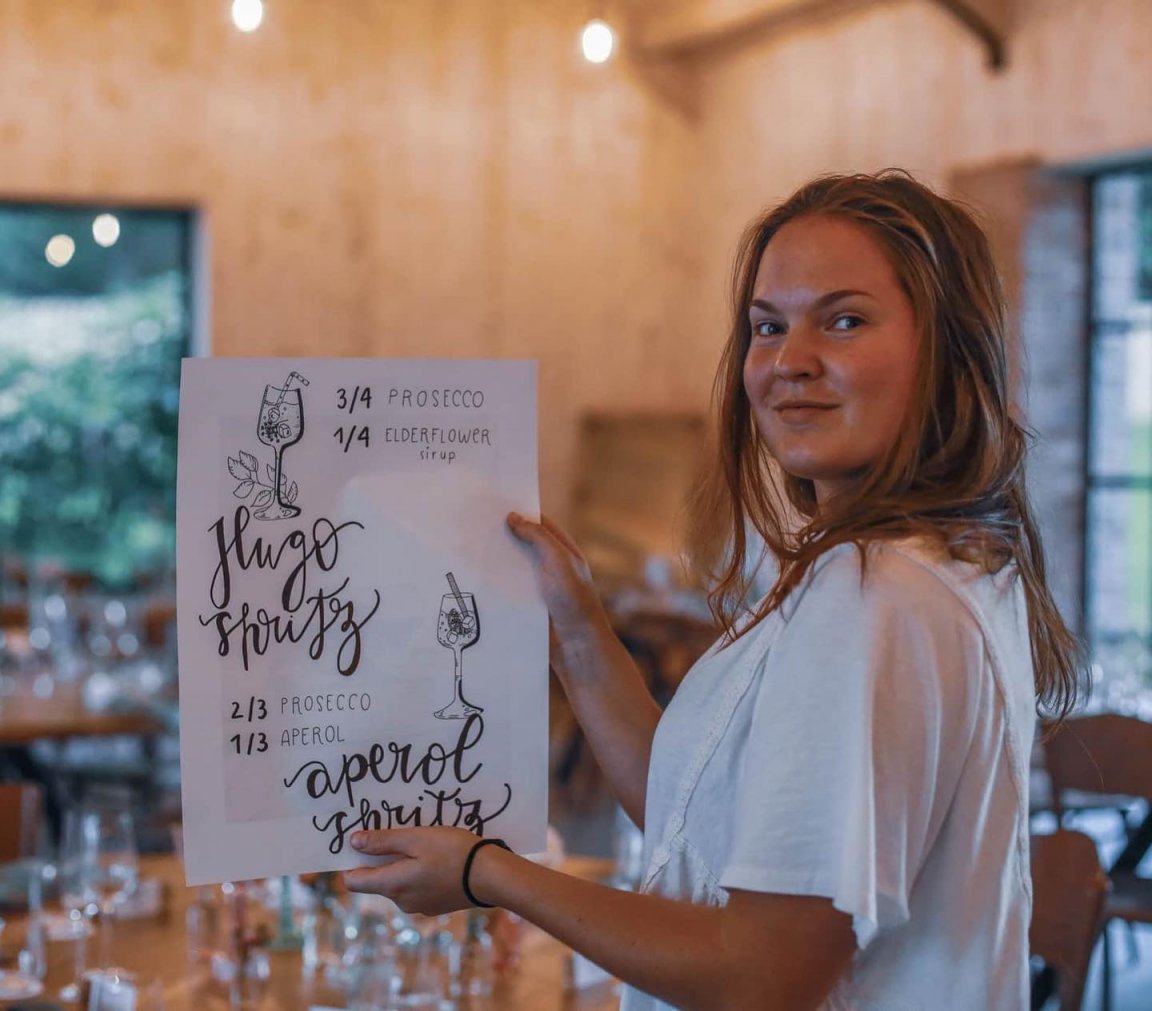 3/4 PROSECCO
1/4 ELDERFLOWER
sirup
Hugo
spritz
2/3 PROSECCO
1/3 APEROL
aperol
spritz